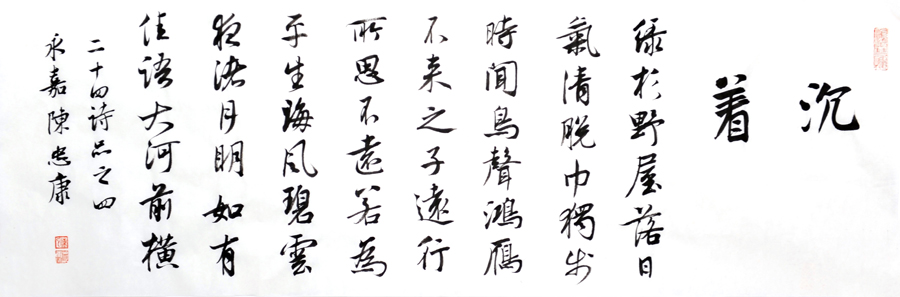 沉着
緑杉野屋落日
氣清脱巾獨步
時聞鳥聲鴻雁
不来之子遠行
所思不遠若為
平生海風碧雲
夜渚月明如有
佳語大河前横
二十四詩品之四
永嘉陳忠康